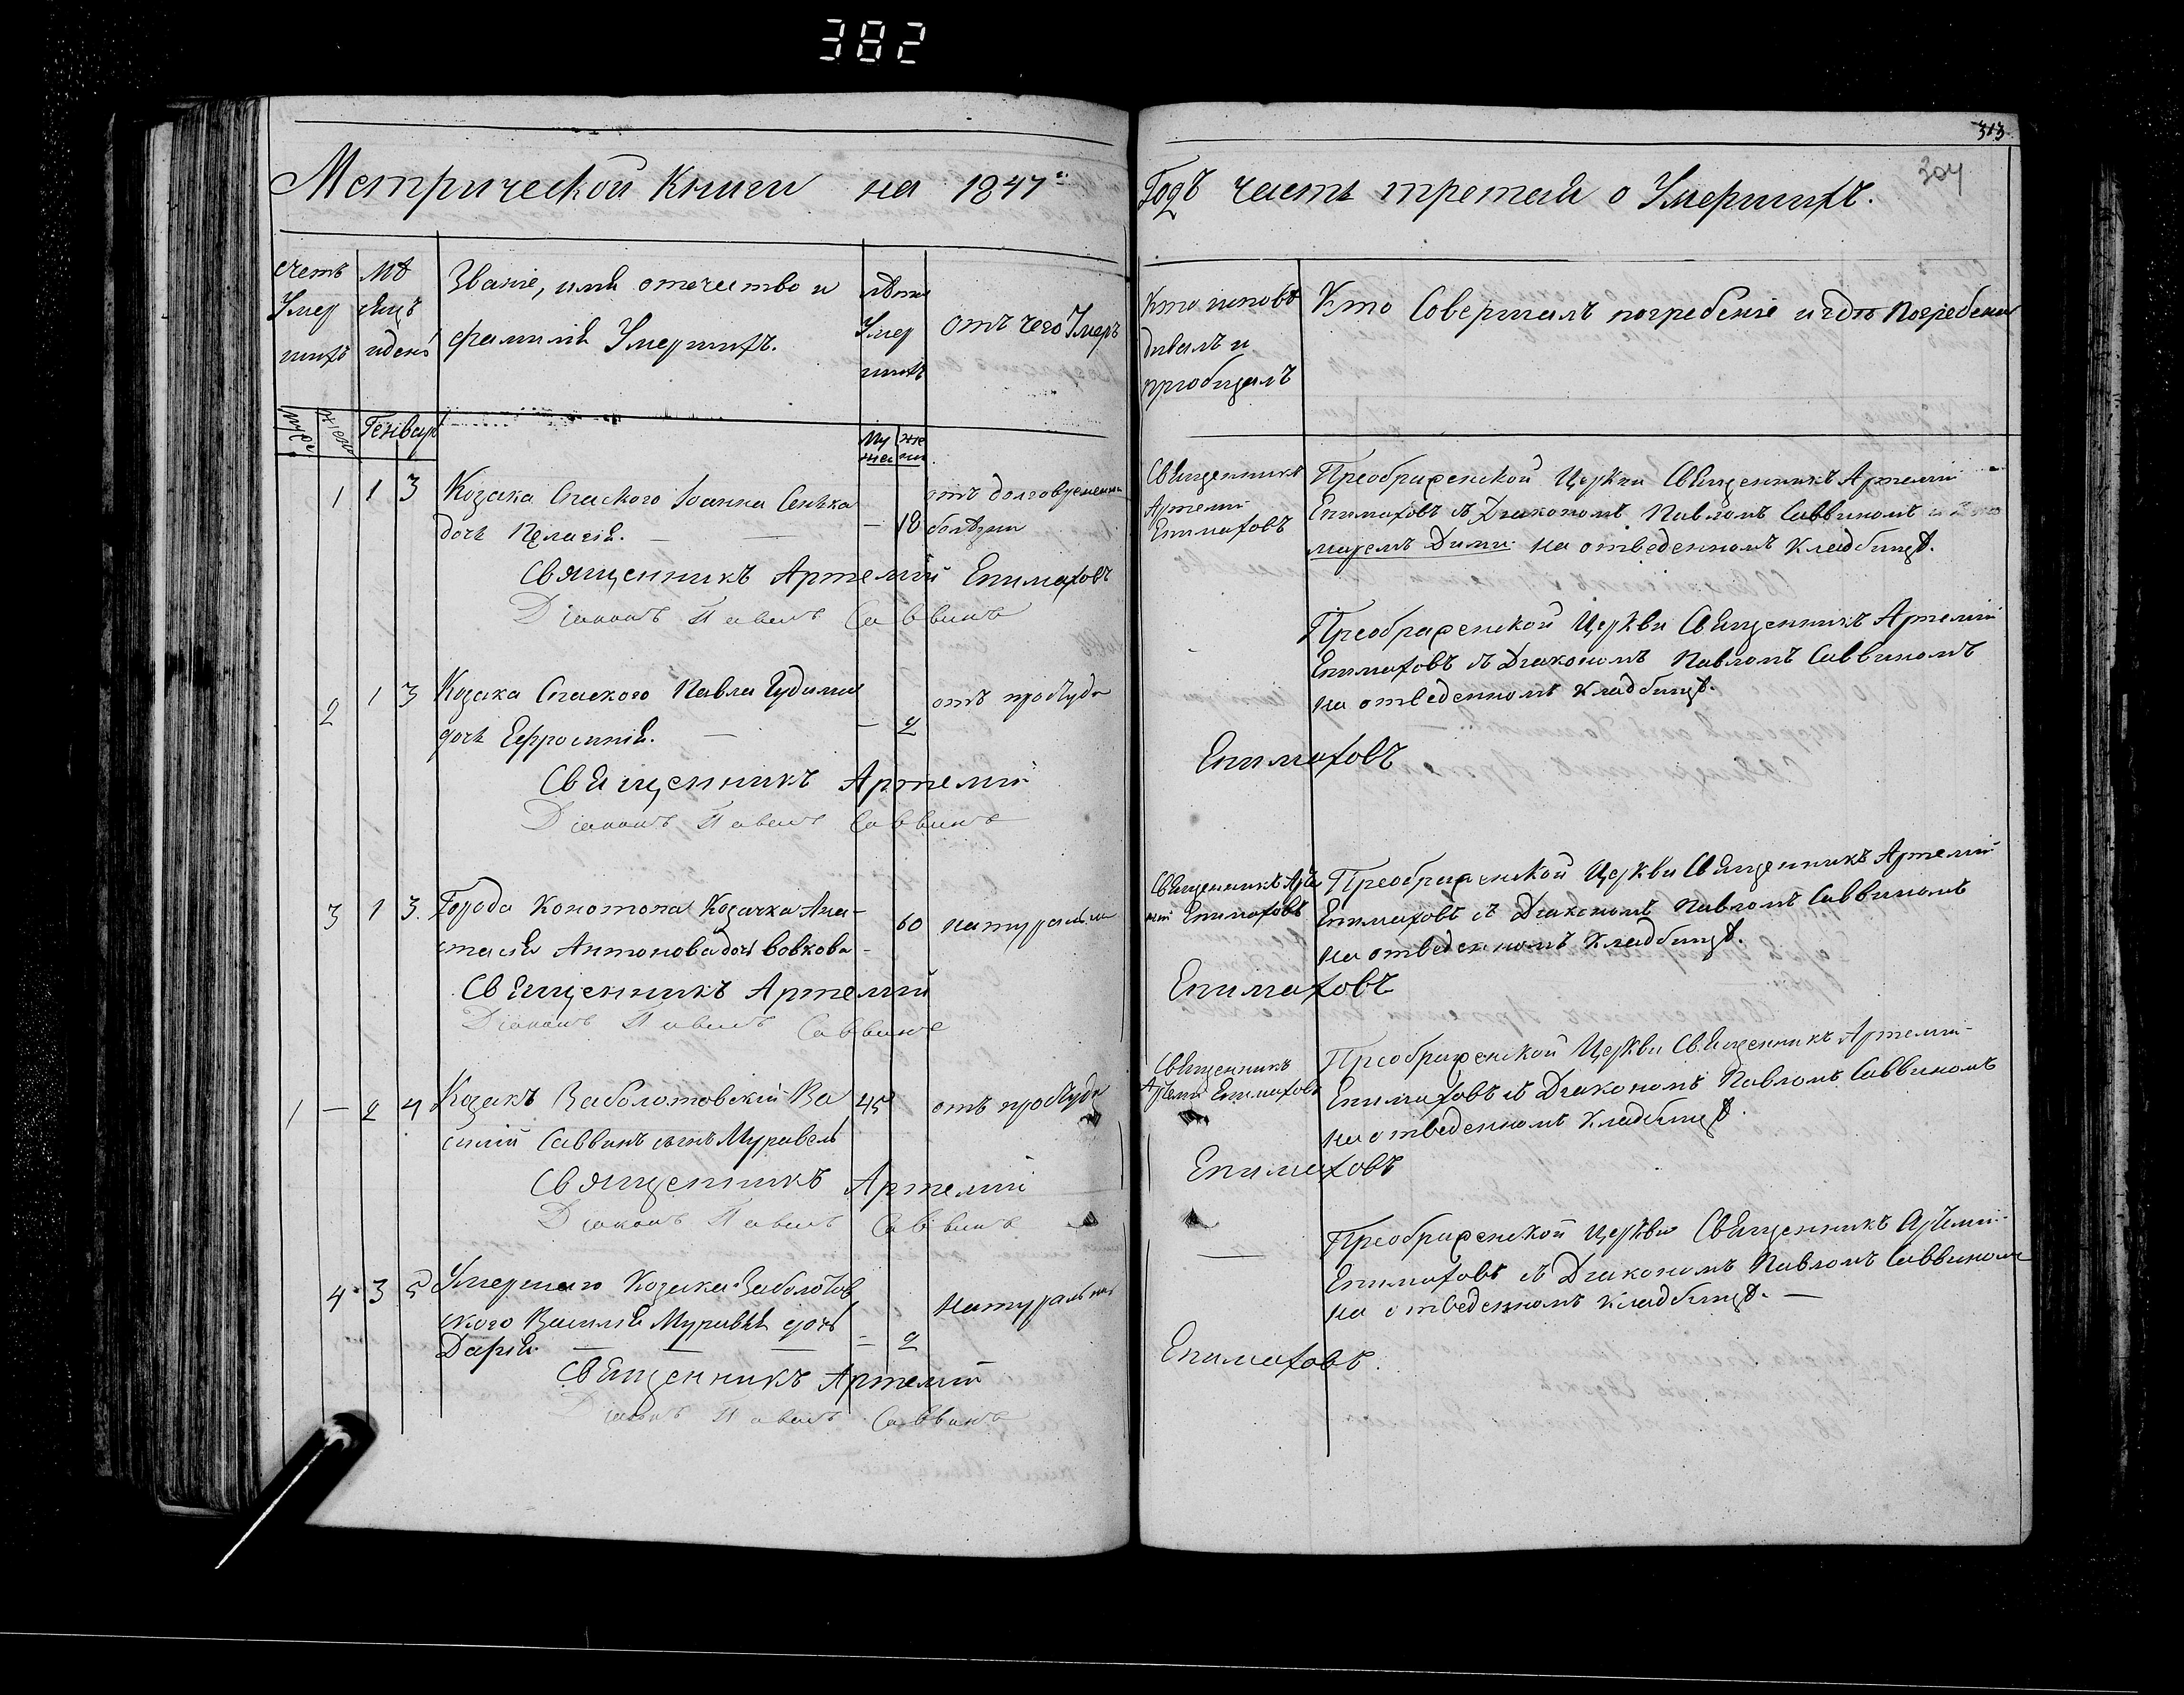 382
313
304
Метрической Книги на 1847й Годъ часть третая о Умершихъ.
Счетъ Умер шихъ
Мѣ сяцъ и день
Званіе, имя отечество и фамилія Умершихъ.
лѣта Умер шихъ
отъ чего Умеръ
Кто исповѣ дывалъ и пріобщалъ
Кто Совершалъ погребеніе и гдѣ Погребены
Муж.
жен.
Генварь
Му жес
же нс
1 1 3 Козака Спаского Іоанна Сенька — 18 отъ долговременн
дочь Пелагія. — — болѣзни
Священникъ Артемій Епимаховъ
Преображенской Церкви Священникъ Артемій
Епимаховъ съ Діакономъ Павломъ Саввиномъ и Поно
маремъ Дими на отведенномъ Кладбищѣ.
Священникъ Артемій Епимаховъ
Діаконъ Павелъ Саввинъ
2 1 3 Козака Спаского Павла Гудыми — 2 отъ простуды
дочь Ефросинія. —
Преображенской Церкви Священникъ Артемій
Епимаховъ съ Діакономъ Павломъ Саввиномъ
на отведенномъ Кладбищѣ.
Священникъ Артемій Епимаховъ
Діаконъ Павелъ Саввинъ
3 1 3 Города Конотопа Козачка Ана- 60 натурально
стасія Антонова дочь Вовкова -
Священникъ Арте мій Епимаховъ
Преображенской Церкви Священникъ Артемій
Епимаховъ съ Діакономъ Павломъ Саввиномъ
на отведенномъ Кладбищѣ.
Священникъ Артемій Епимаховъ
Діаконъ Павелъ Саввинъ
1 — 2 4 Козакъ Заболотовскій Ва 45 отъ простуды
силій Саввинъ сынъ Муравель
Священникъ Артемій Епимаховъ
Преображенской Церкви Священникъ Артемій
Епимаховъ съ Діакономъ Павломъ Саввиномъ
на отведенномъ Кладбищѣ.
Священникъ Артемій Епимаховъ
Діаконъ Павелъ Саввинъ
4 3 5 Умершаго Козака Заболотов натурально
ского Василія Муравля дочь — 2
Дарія. — — —
—
Преображенской Церкви Священникъ Артемій
Епимаховъ съ Діакономъ Павломъ Саввиномъ
на отведенномъ Кладбищѣ. —
Священникъ Артемій Епимаховъ.
Діаконъ Павелъ Саввинъ